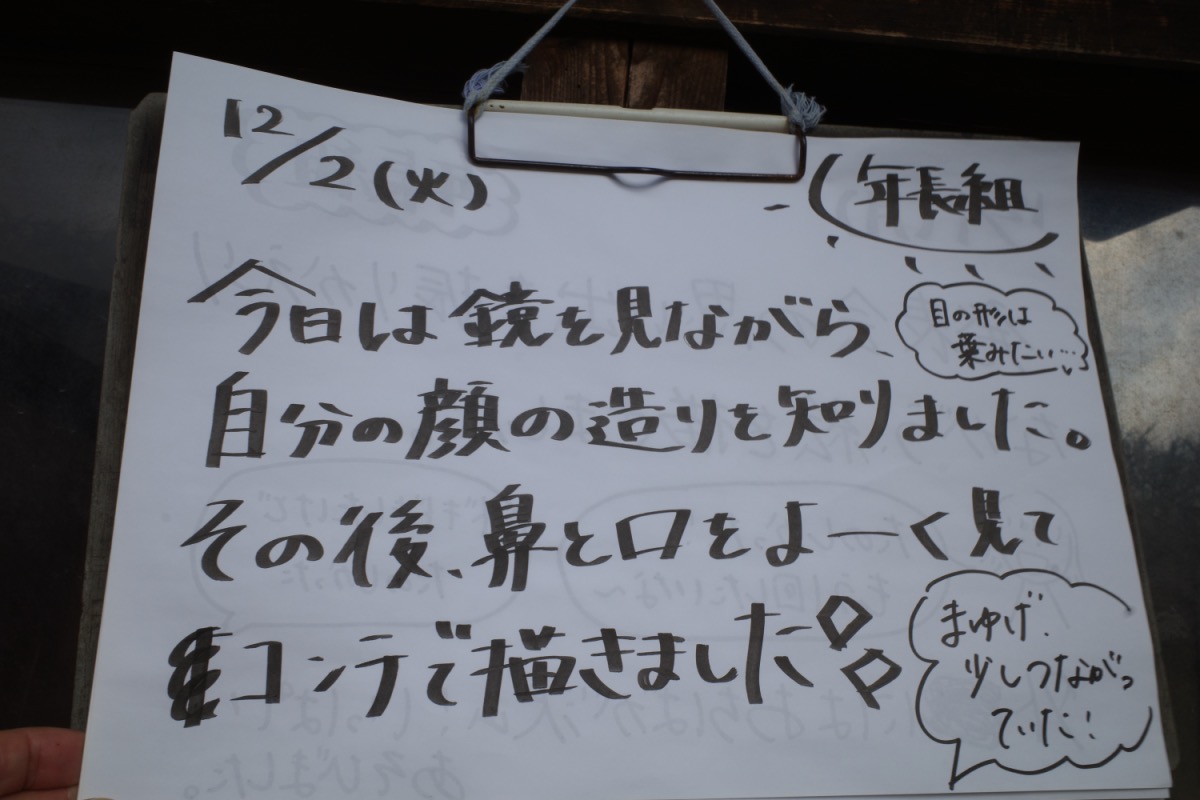 12/2(火)
年長組
今日は鏡を見ながら、
目の形は
葉みたい…
自分の顔の造りを知りました。
その後、鼻と口をよーく見て
コンテで描きました
まゆげ、
少しつながっ
ていた!